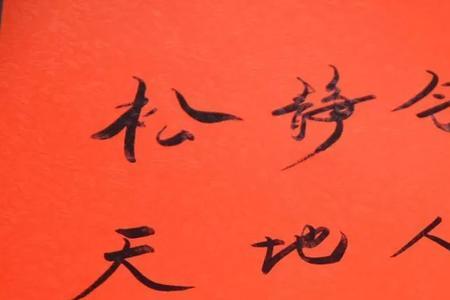 松静
天地人